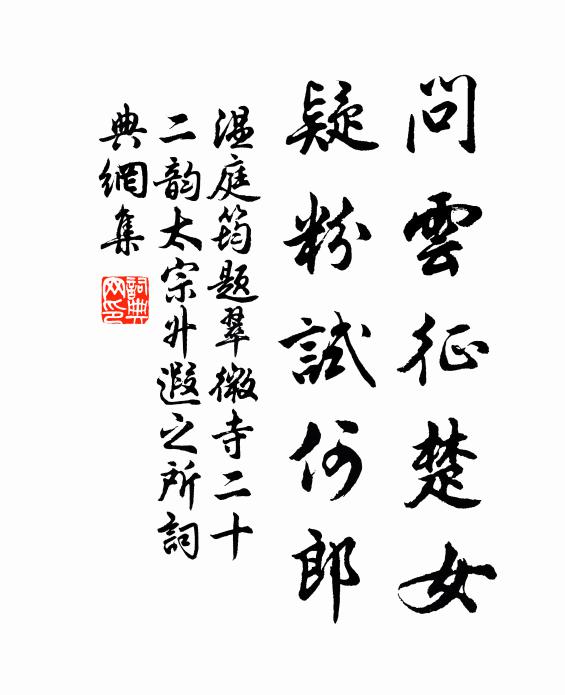 問雲征楚女
疑粉試何郎
温庭筠题翠微寺二十
二韵太宗升遐之所詞
典網集
詞典網印